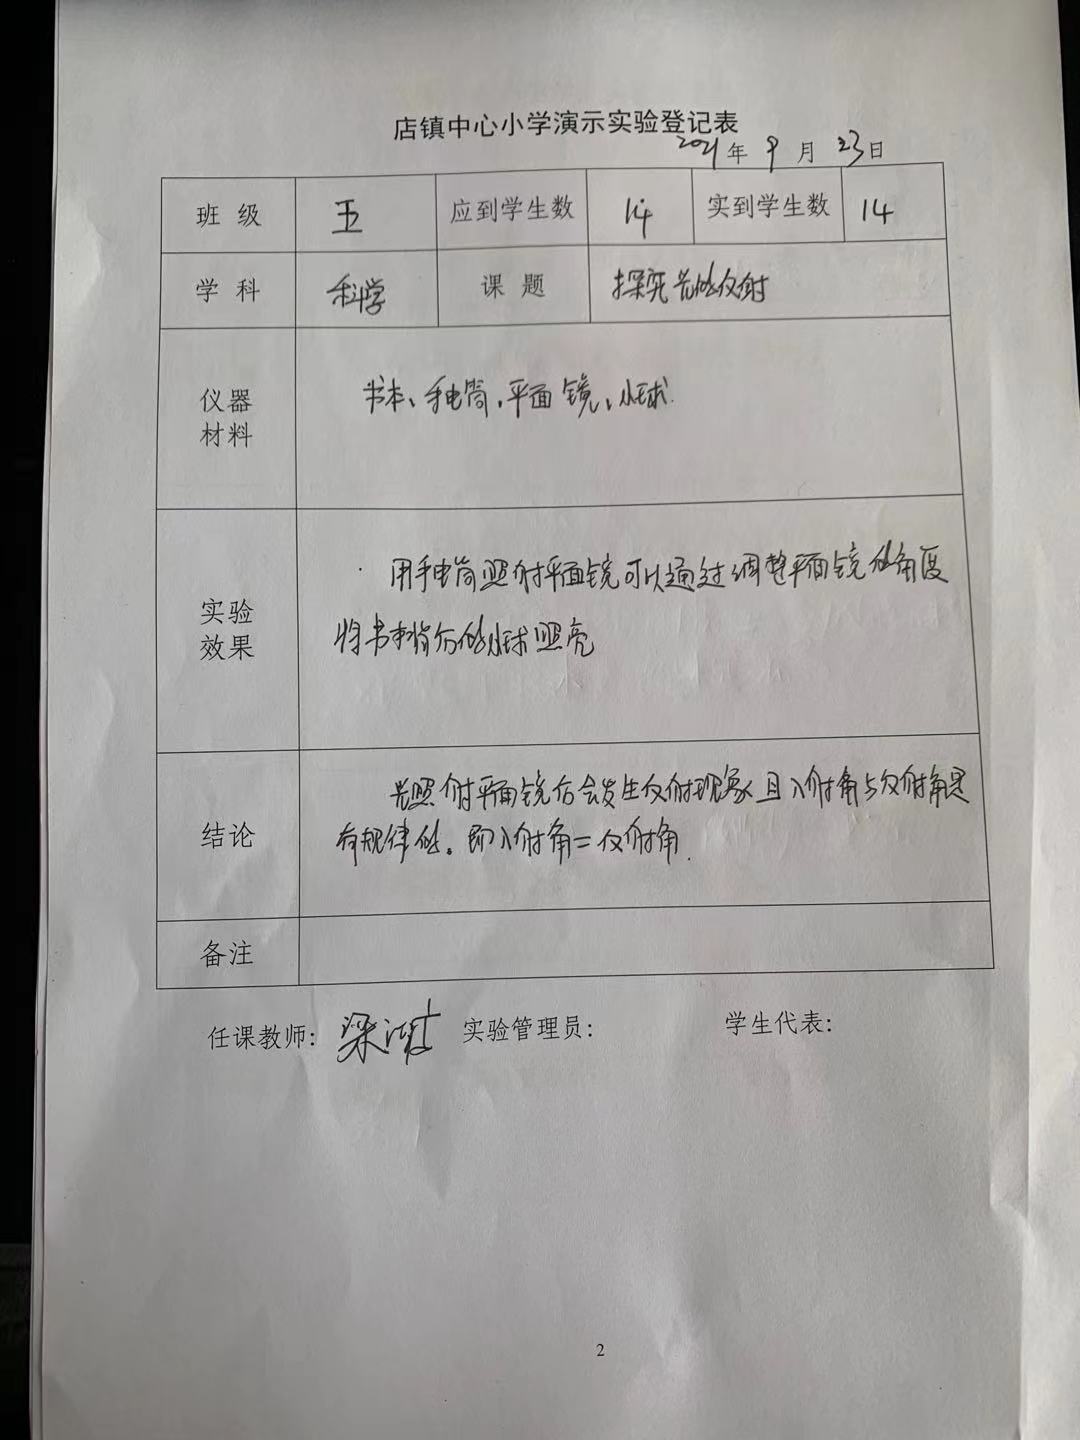 店镇中心小学演示实验登记表
2021年 9月 23日
班 级 五 应到学生数 14 实到学生数 14
学 科 科学 课 题 探究光的反射
仪器
材料
书本、手电筒、平面镜、小球.
实验
效果
用手电筒照射平面镜可以通过调整平面镜的角度
将书本背后的小球照亮
结论
光照射平面镜后会发生反射现象且入射角与反射角是
有规律的。即入射角=反射角.
备注
任课教师: 梁 实验管理员: 学生代表:
2